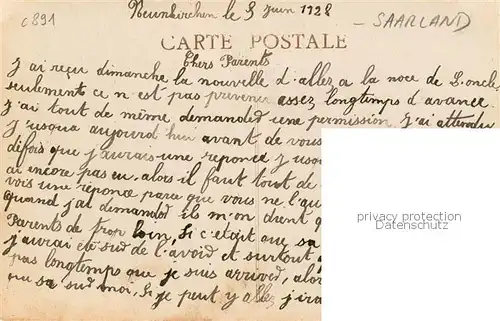 c891
Neunkirchen le 9 Juin 1928
- SAARLAND
CARTE POSTALE
Chers Parents
J ai reçu dimanche la nouvelle d'allez a la noce de L'oncle
seulement ce n est pas prevenir assez longtemps d'avance.
J'ai tout de même demandez une permission J'ai attendu
jusqua aujourd hui avant de vous
défois que j'aurais une reponce jusqu
ai encore pas eu. alors il faut tout de
vois une réponce parce que vous ne l'au
quand j'ai demandez ils m'on dient q
Parents de trop loin, Si c'etait que sa
j'aurai été sur de l'avoir et surtout
pas longtemps que je suis arrivez, alors
que sa sur moi, Si je peut y allez j'ira
privacy protection
Datenschutz